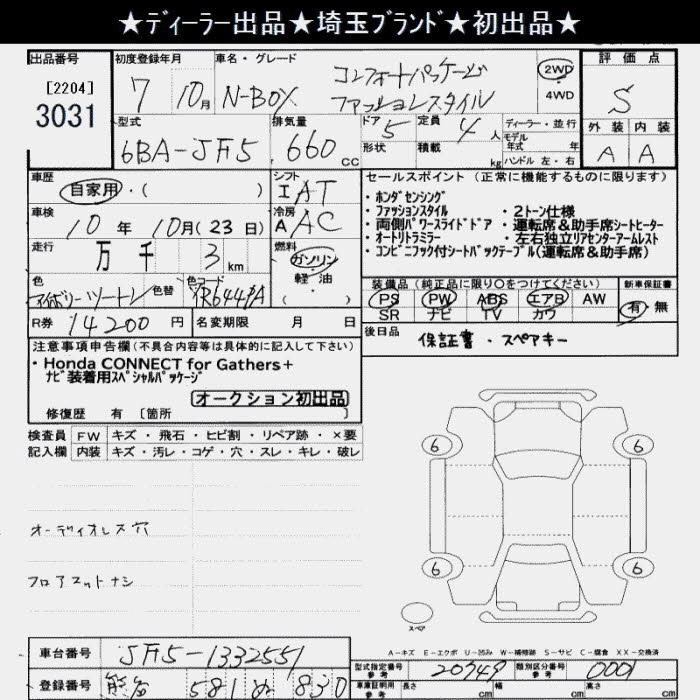 ★ディーラー出品★埼玉ブランド★初出品★
出品番号
[2204]
3031
初度登録年月
7 10月
車名・グレード
N-BOX
コンフォートパッケージ
ファッションスタイル
2WD
・
4WD
評価点
S
外装 内装
A A
型式
6BA-JF5
排気量
660 cc
ドア 5
形状
定員 4 人
積載 kg
ディーラー・並行
モデル
年式 年
ハンドル 左・右
車歴
自家用・( )
シフト
I AT
車検
10年 10月(23日)
冷房
A AC
走行
万 千 3 km
燃料
ガソリン
・
軽油
( )
色
色替
色コード
YR644PA
R券 14200 円
名変期限 月 日
セールスポイント (正常に機能するものに限ります)
・ホンダセンシング
・ファッションスタイル ・2トーン仕様
・両側パワースライドドア ・運転席&助手席シートヒーター
・オートリトラミラー ・左右独立リアセンターアームレスト
・コンビニフック付シートバックテーブル(運転席&助手席)
装備品 (純正品に限り○をつけてください)
PS PW ABS エアB AW
SR ナビ TV カワ
新車保証書
有・無
後日品
保証書・スペアキー
注意事項申告欄(不具合内容等は具体的に記入して下さい)
・Honda CONNECT for Gathers+
ナビ装着用スペシャルパッケージ
オークション初出品
修復歴 有 [箇所 ]
検査員 FW キズ・飛石・ヒビ割・リペア跡・×要
記入欄 内装 キズ・汚レ・コゲ・穴・スレ・キレ・破レ
オーディオレス穴
フロアマットナシ
6 6
6 6
スペア
A-キズ E-エクボ U-凹み W-補修跡 S-サビ C-腐食 XX-交換済
車台番号 JF5-1332551
型式指定番号
参考
20749
類別区分番号
参考
0001
登録番号 熊谷 581 ぬ 830
車庫証明用
参考
長さ cm 幅 cm 高さ cm